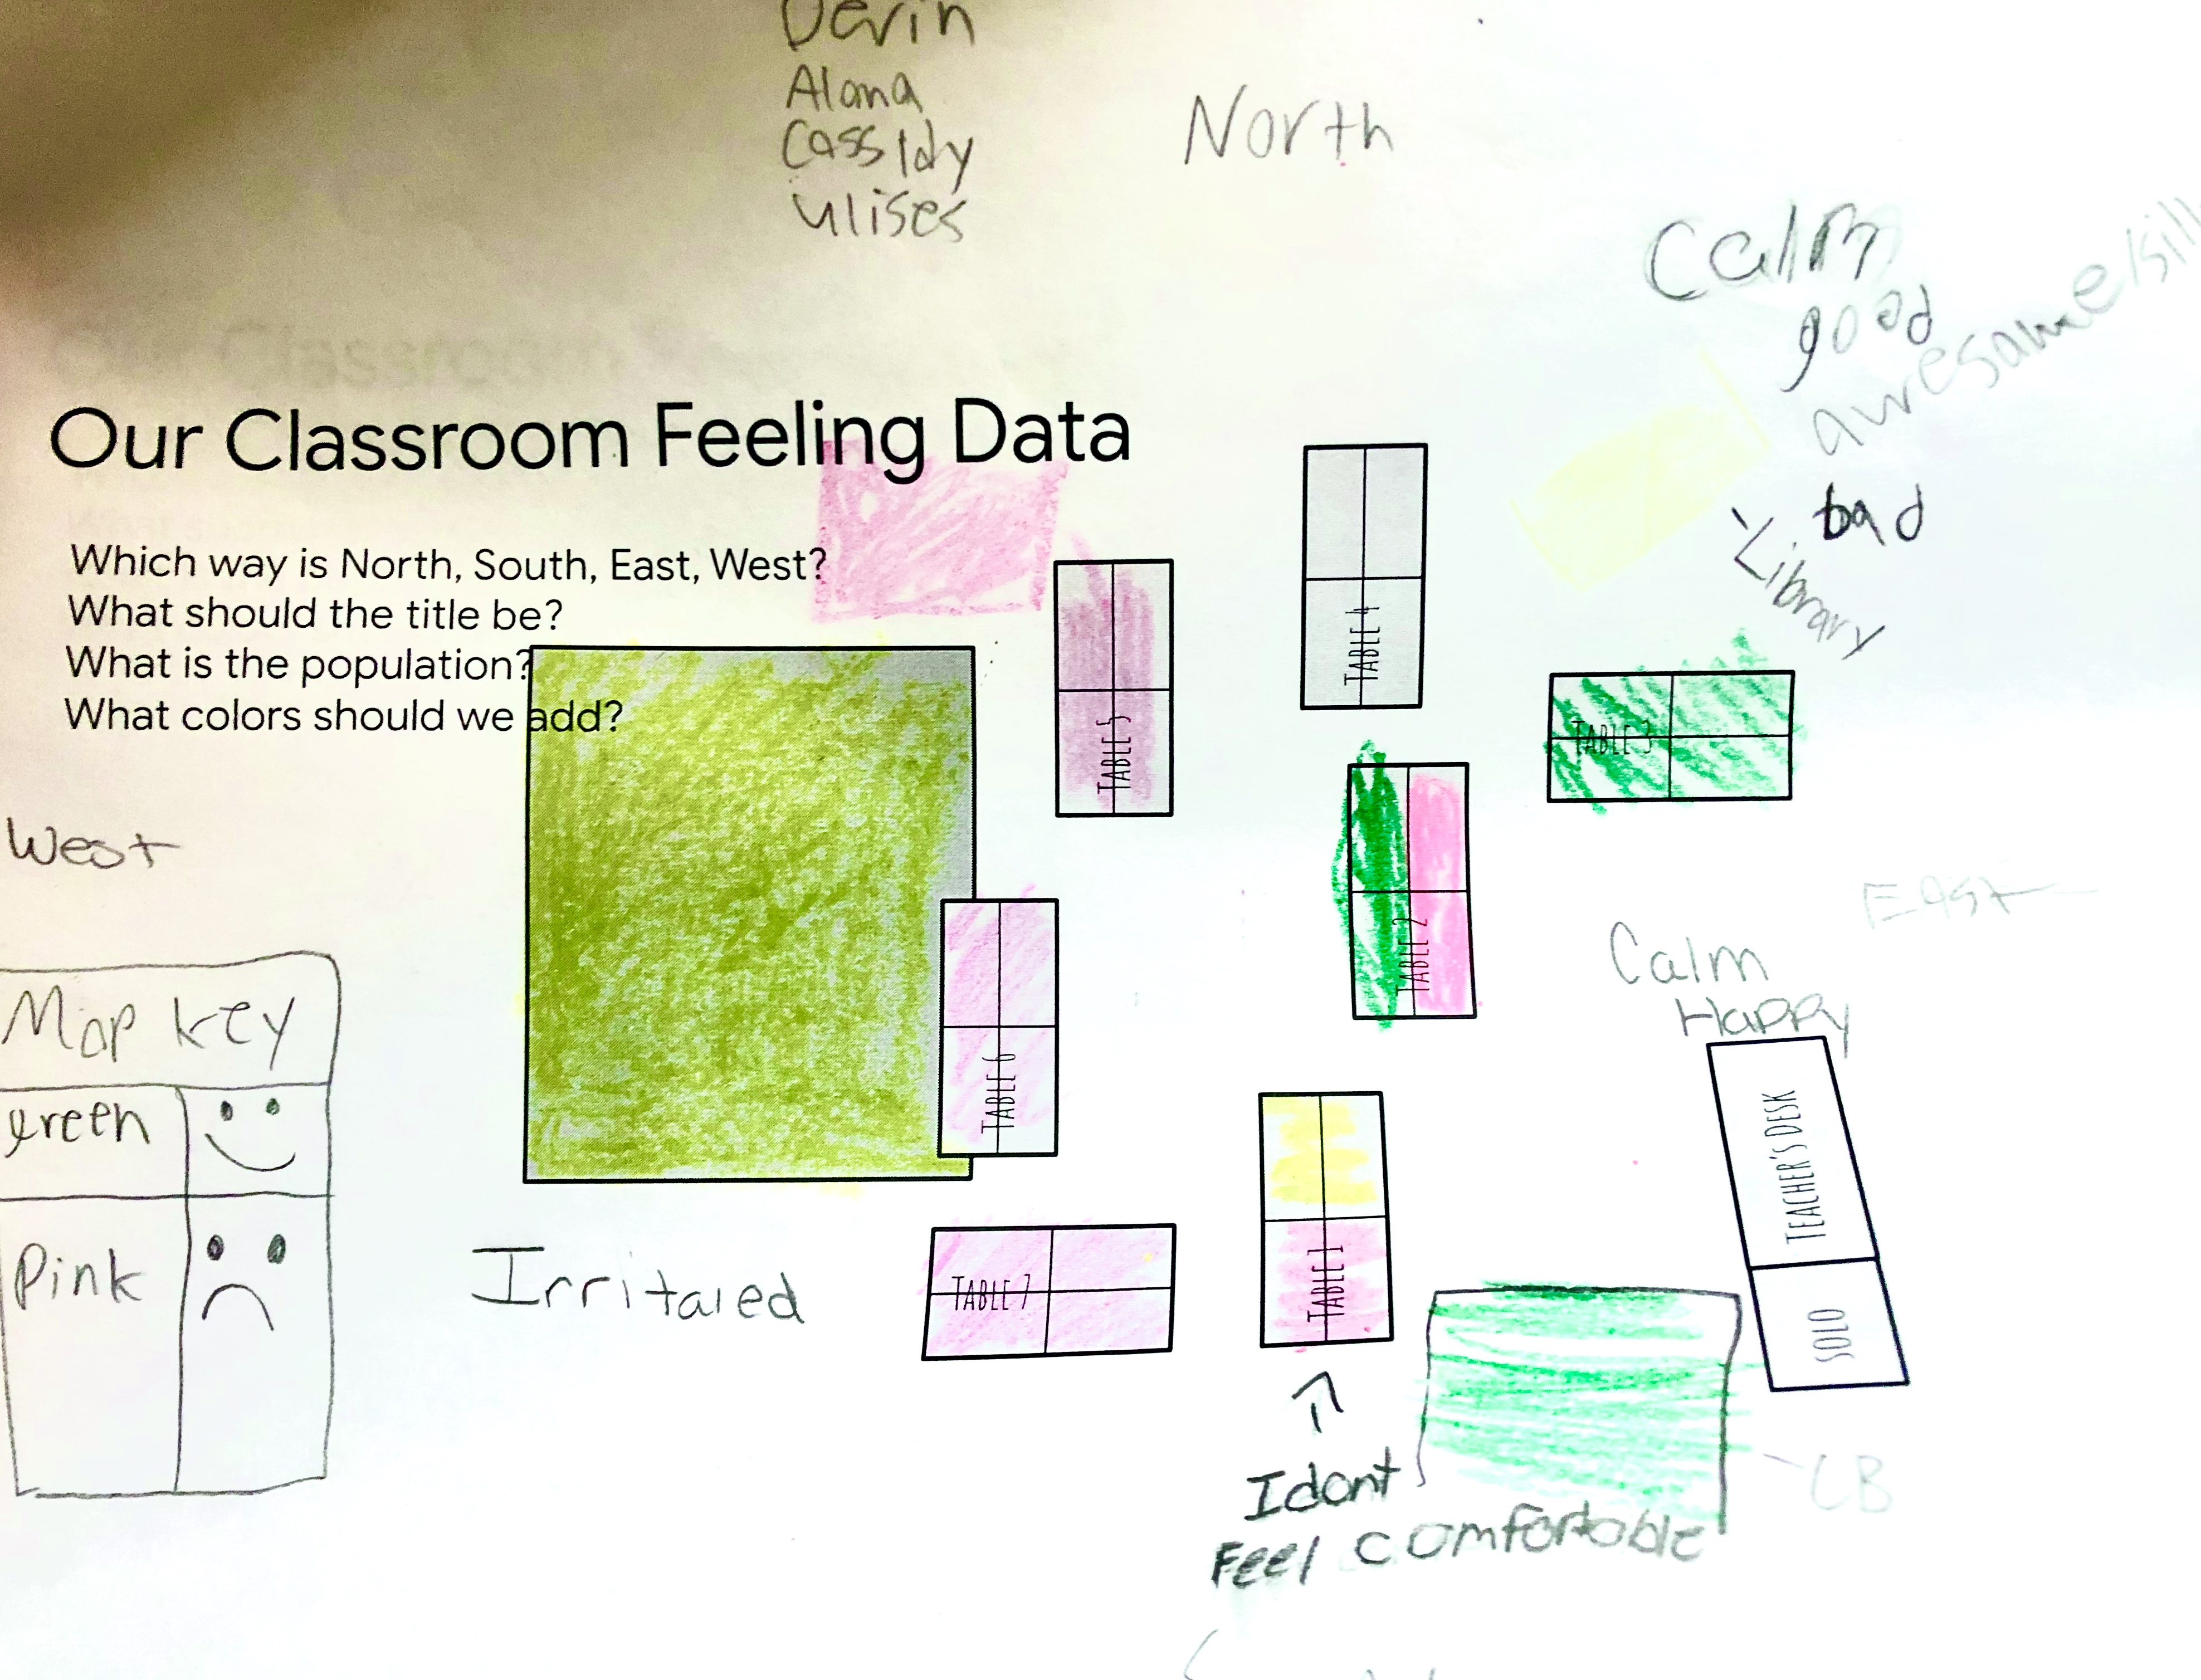 Devin
Alana
Cassidy
ulises
North
Calm
good
awesome/sill
bad
Library
Our Classroom Feeling Data
Which way is North, South, East, West?
What should the title be?
What is the population?
What colors should we add?
TABLE 4
TABLE 5
TABLE 3
TABLE 2
West
East
Calm
Happy
Map key
green
Pink
TABLE 6
TEACHER'S DESK
SOLO
Irritaed
TABLE 7
TABLE 1
I dont
Feel comfortable
CB